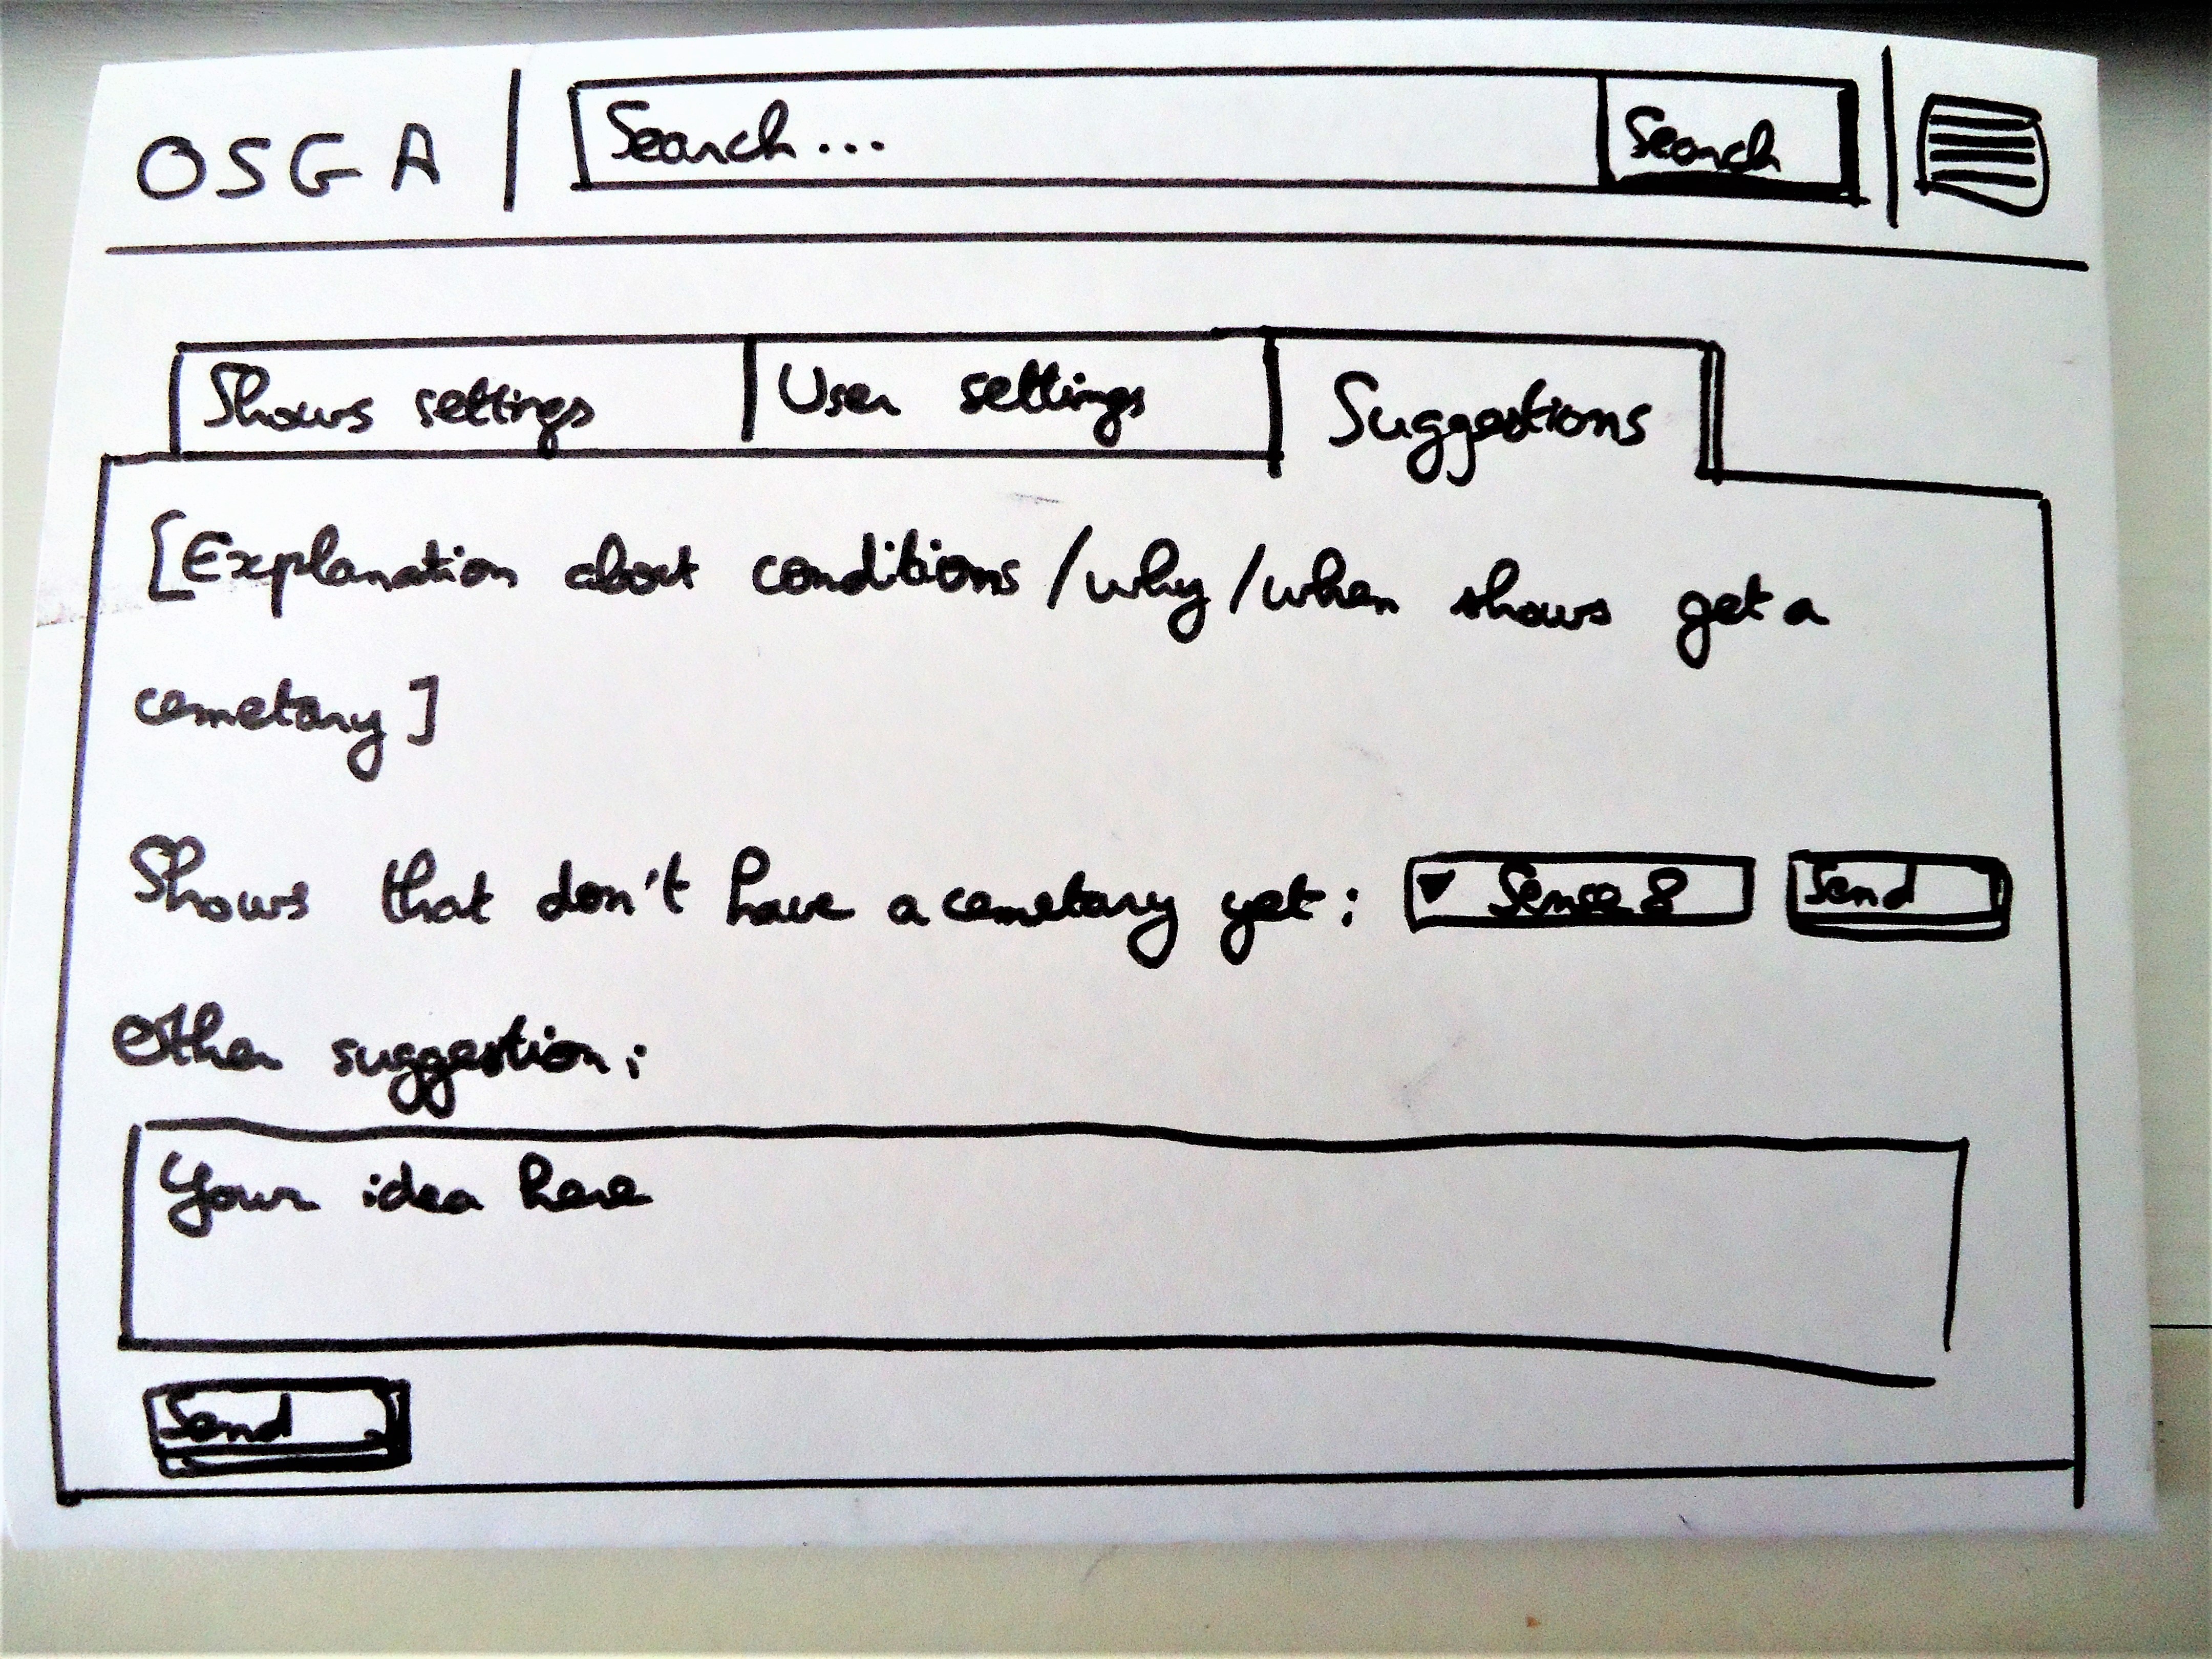 OSGA Search... Search
Shows settings User settings Suggestions
[Explanation about conditions/why/when shows get a
cemetary]
Shows that don't have a cemetary yet: Sense 8 Send
Other suggestion:
Your idea here
Send